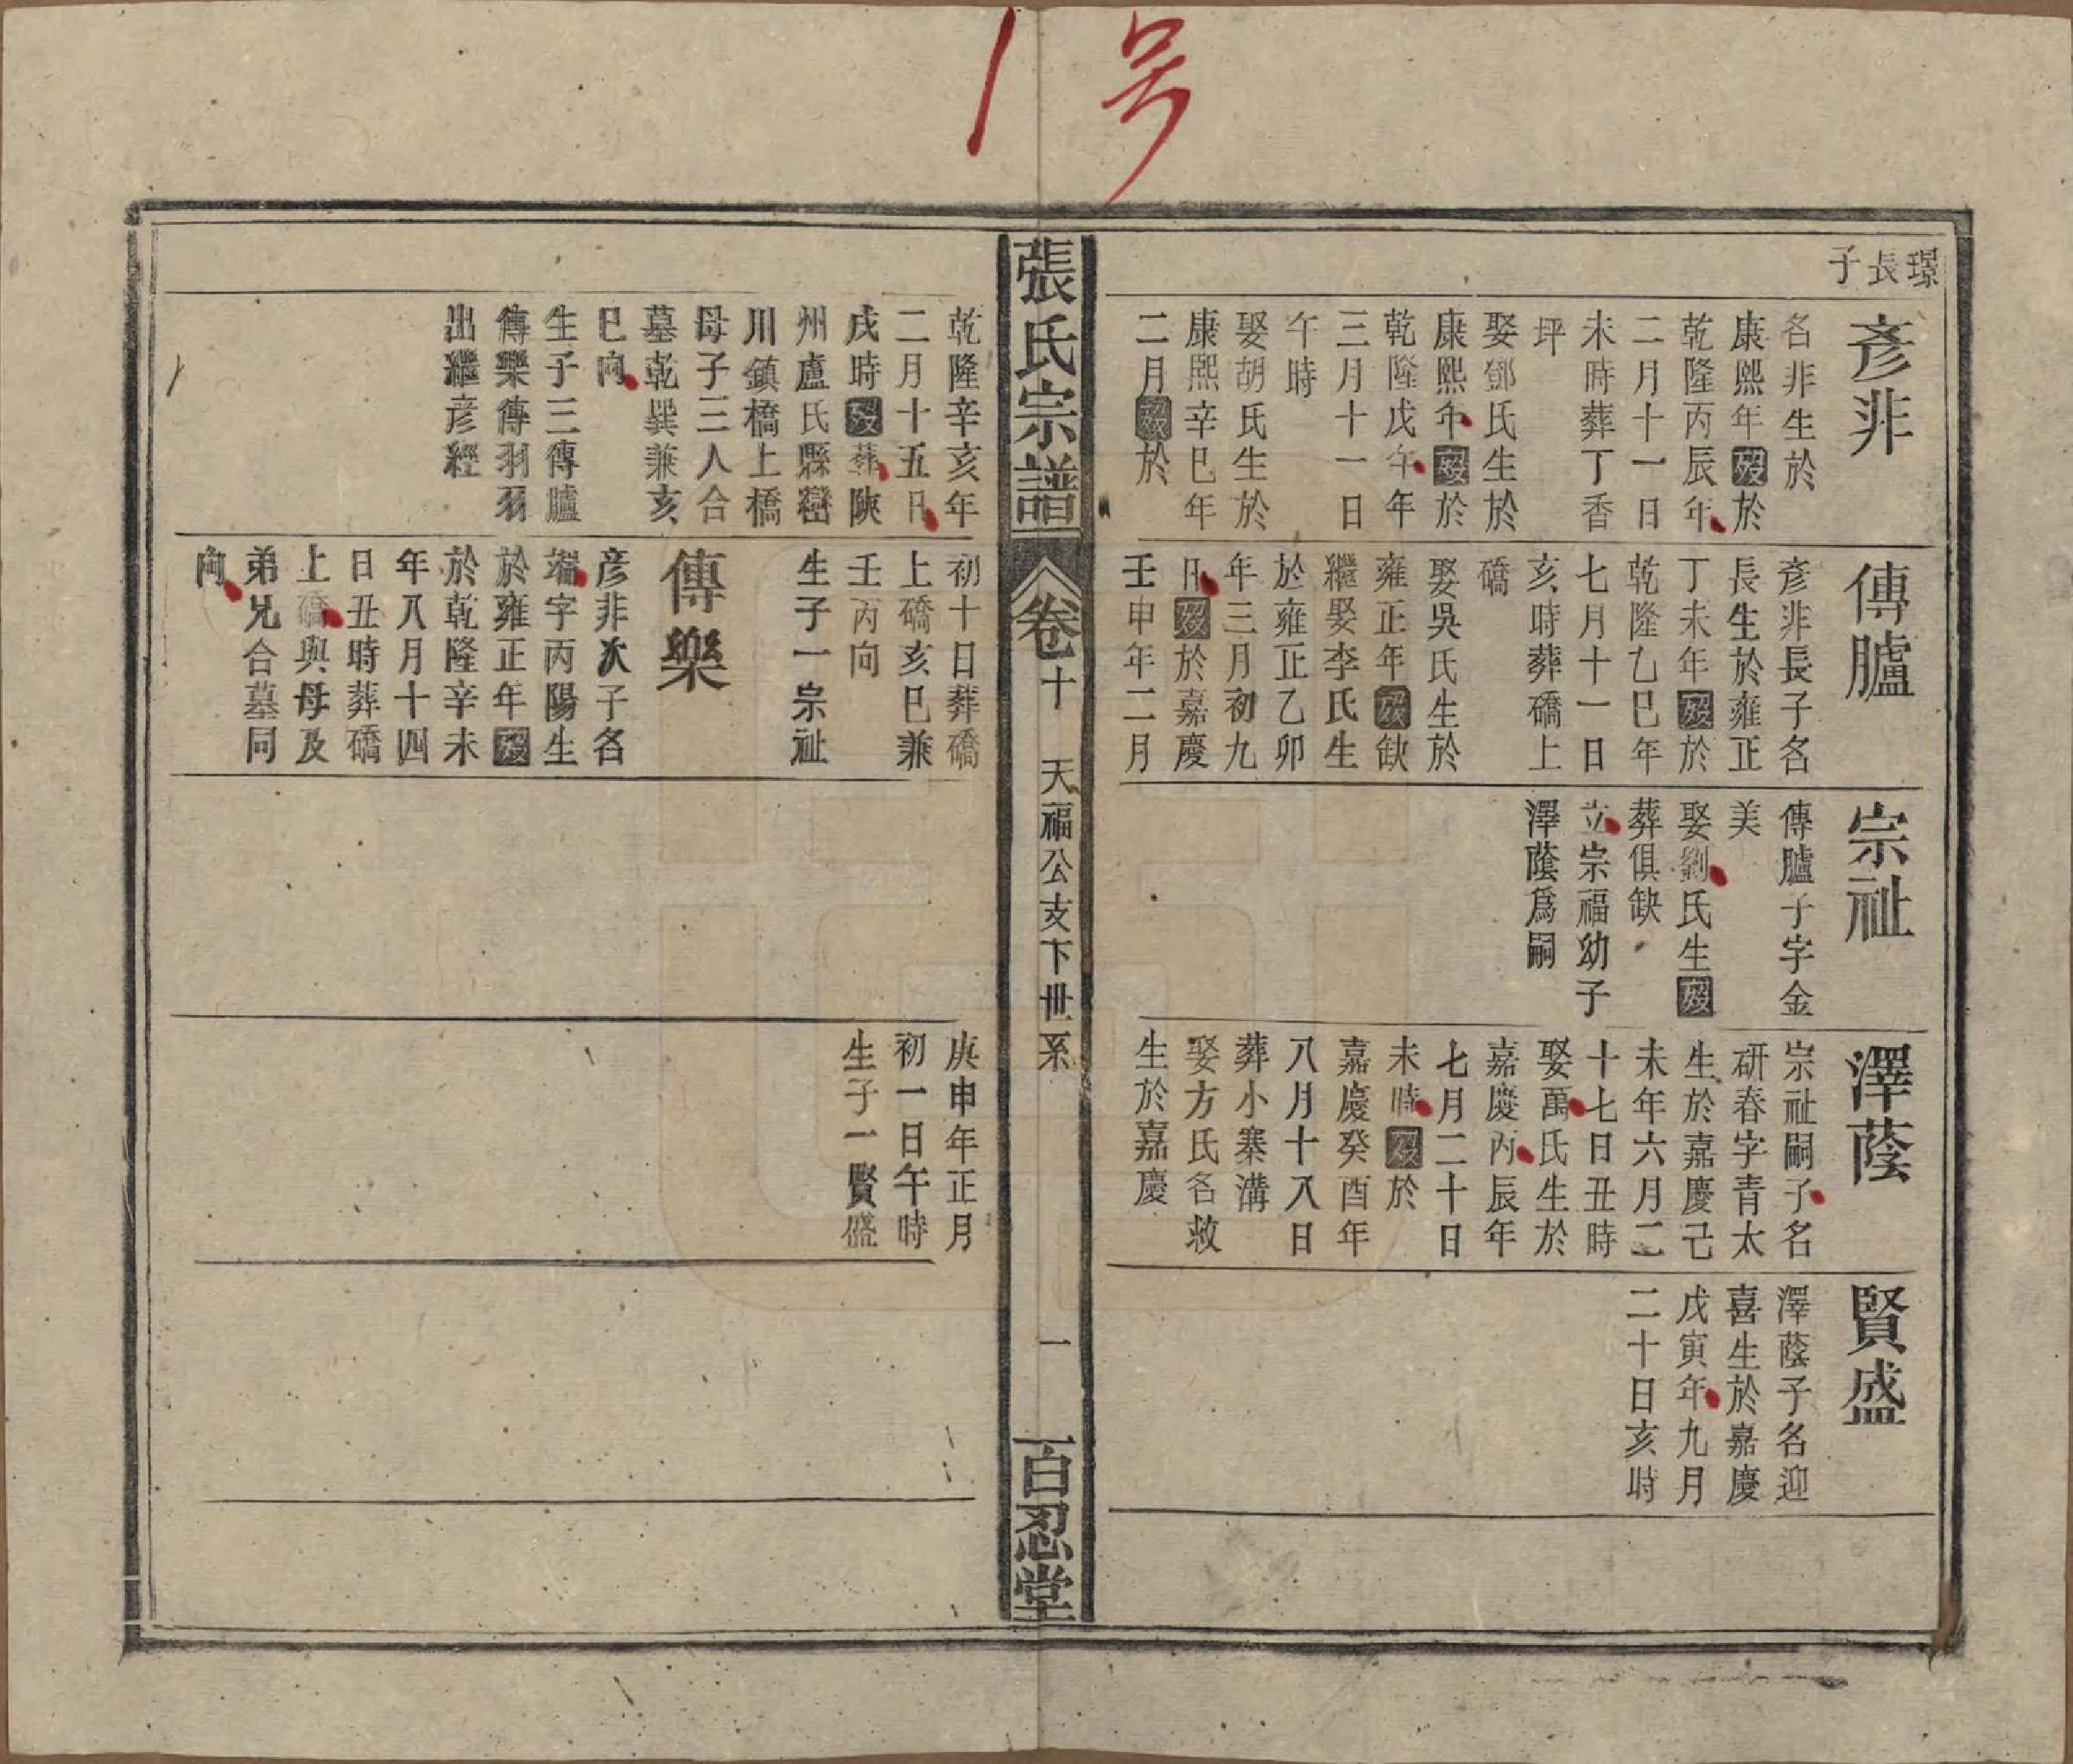 1号
璟長子
彥非
名非生於
康熙年歿於
乾隆丙辰年
二月十一日
未時葬丁香
坪
娶鄧氏生於
康熙年歿於
乾隆戊午年
三月十一日
午時
娶胡氏生於
康熙辛巳年
二月歿於
傳臚
彥非長子名
長生於雍正
丁未年歿於
乾隆乙巳年
七月十一日
亥時葬礄上
礄
娶吳氏生於
雍正年歿缺
繼娶李氏生
於雍正乙卯
年三月初九
日歿於嘉慶
壬申年二月
宗祉
傳臚子字金
美
娶劉氏生歿
葬俱缺
立宗福幼子
澤蔭為嗣
澤蔭
宗祉嗣子名
研春字青太
生於嘉慶己
未年六月二
十七日丑時
娶萬氏生於
嘉慶丙辰年
七月二十日
未時歿於
嘉慶癸酉年
八月十八日
葬小寨溝
娶方氏名救
生於嘉慶
賢盛
澤蔭子名迎
喜生於嘉慶
戊寅年九月
二十日亥時
張氏宗譜
卷十
天福公支下世系
一
百忍堂
乾隆辛亥年
二月十五日
戌時歿葬陝
州盧氏縣巒
川鎮橋上橋
母子三人合
墓乾巽兼亥
巳向
生子三傳臚
傳樂傳羽羽
出繼彥經
初十日葬礄
上礄亥巳兼
壬丙向
生子一宗祉
傳樂
彥非次子名
端字丙陽生
於雍正年歿
於乾隆辛未
年八月十四
日丑時葬礄
上礄與母及
弟兄合墓同
向
庚申年正月
初一日午時
生子一賢盛